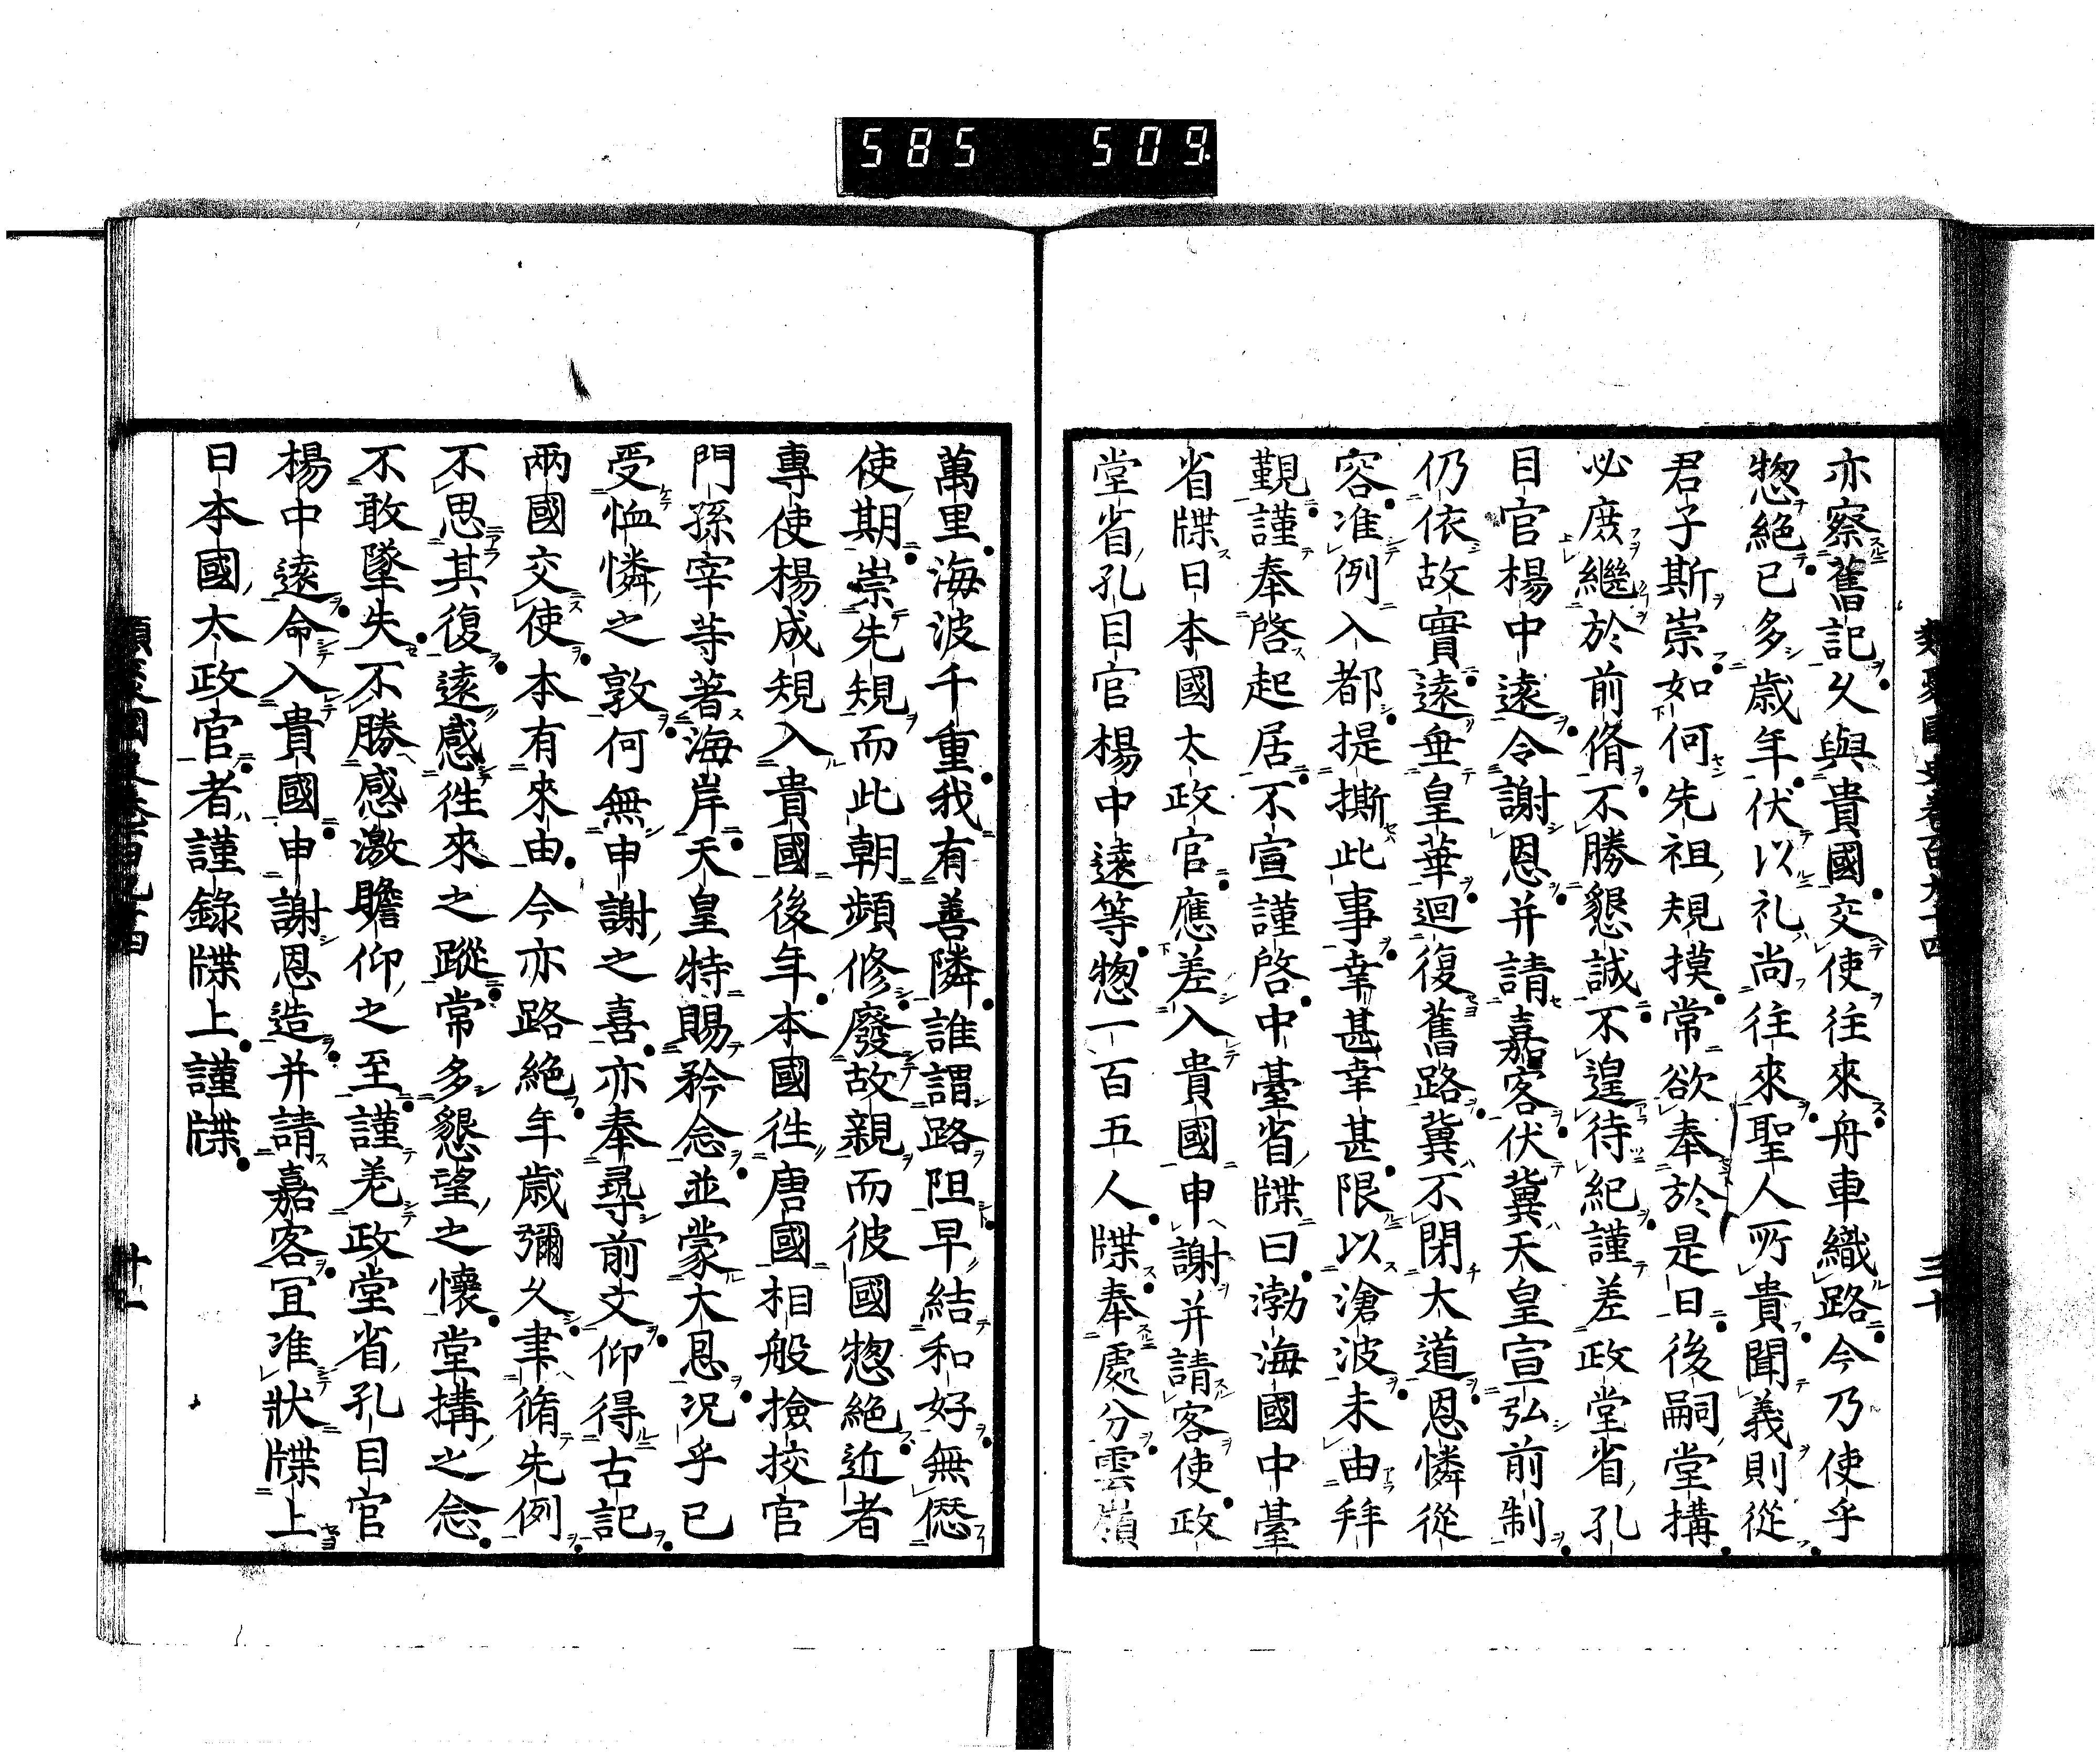 585 509.
類聚國史卷百九十四 三十
亦察舊記久與貴國交使往來舟車織路今乃使乎
惣絕已多歲年伏以礼尚往來聖人所貴聞義則從
君子斯崇如何先祖規摸常欲奉於是日後嗣堂搆
必庶繼於前脩不勝懇誠不遑待紀謹差政堂省孔
目官楊中遠令謝恩并請嘉客伏冀天皇宣弘前制
仍依故實遠垂皇華迴復舊路冀不閉大道恩憐從
容准例入都提撕此事幸甚幸甚限以滄波未由拜
覲謹奉啓起居不宣謹啓中臺省牒曰渤海國中臺
省牒日本國太政官應差入貴國申謝并請客使政
堂省孔目官楊中遠等惣一百五人牒奉處分雲嶺
萬里海波千重我有善隣誰謂路阻早結和好無僁
使期崇先規而此朝頻修廢故親而彼國惣絕近者
專使楊成規入貴國後年本國往唐國相般撿挍官
門孫宰等著海岸天皇特賜矜念並蒙大恩況乎已
受恤憐之敦何無申謝之喜亦奉尋前文仰得古記
兩國交使本有來由今亦路絕年歲彌久聿脩先例
不思其復遠感往來之蹤常多懇望之懷堂搆之念
不敢墜失不勝感激瞻仰之至謹差政堂省孔目官
楊中遠命入貴國申謝恩造并請嘉客宜准狀牒上
日本國太政官者謹錄牒上謹牒
類聚國史卷百九十四 卅一